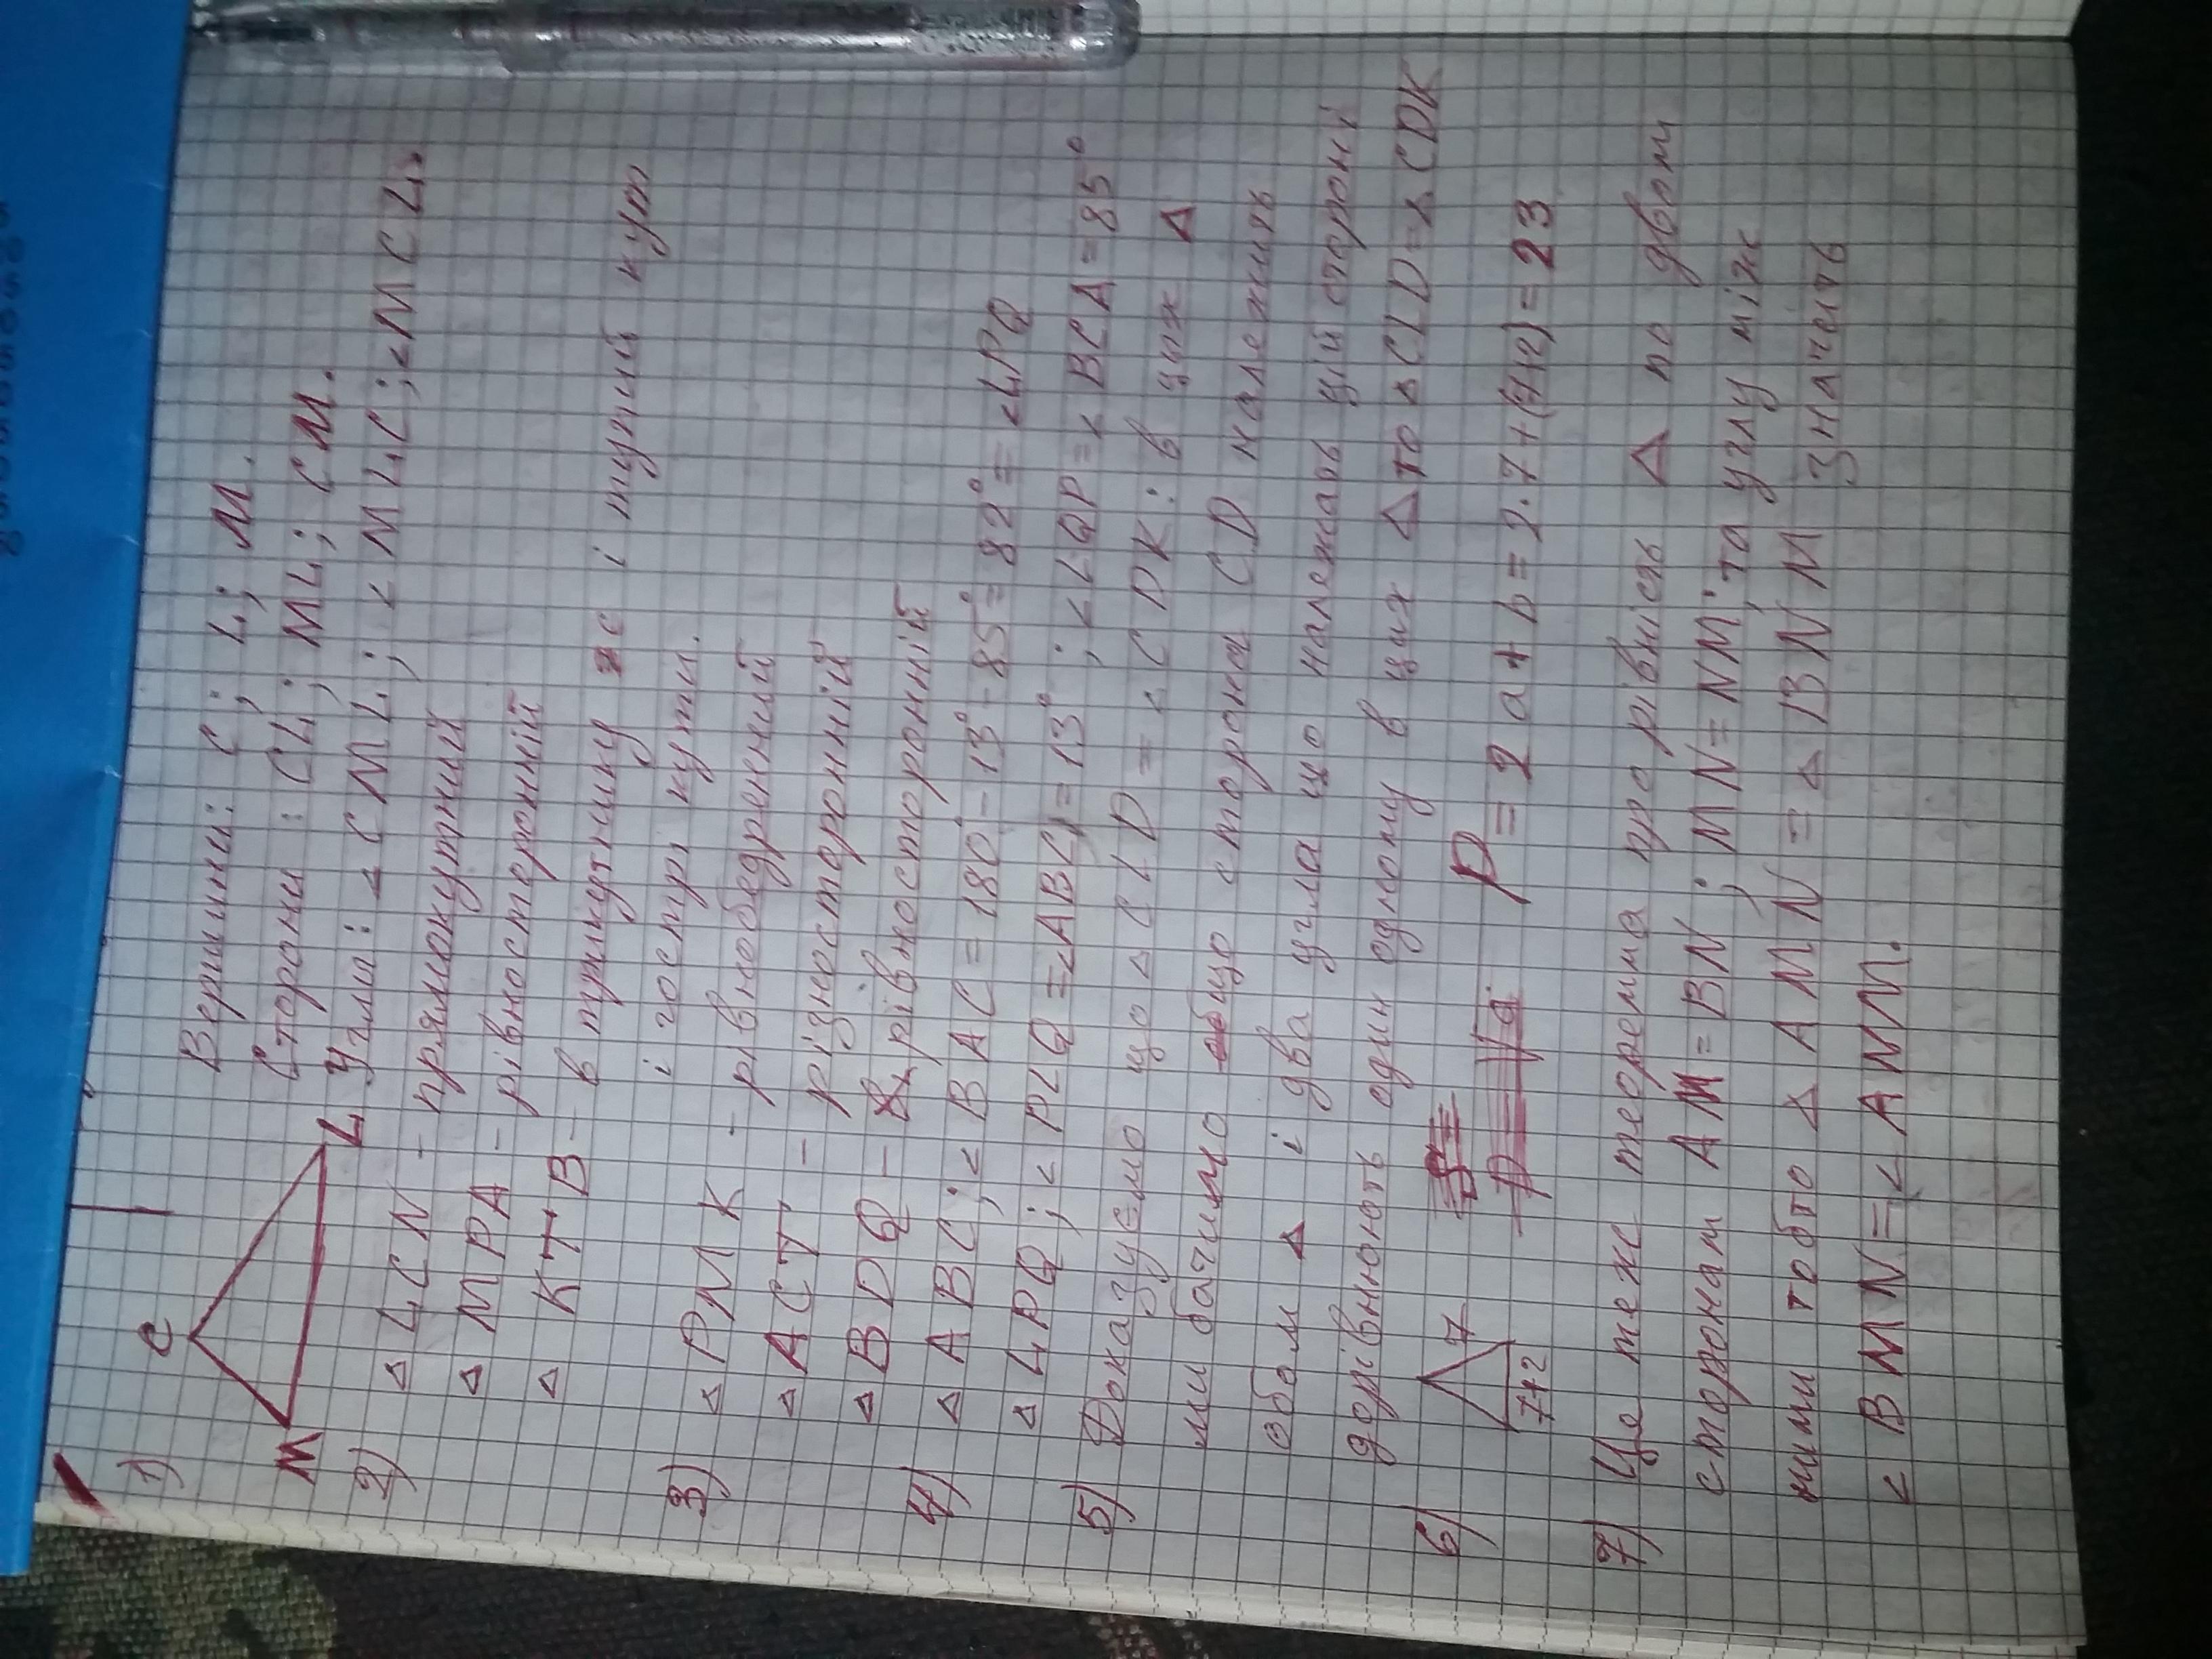 1) C M L Вершини: C; L; M.
Сторони: CL; ML; CM.
Угла: <CML; <MLC; <MCL
2) △LCN - прямокутний
△MPA - рівносторонній
△KTB - в трикутнику є і тупий кут
і гострі кути.
3) △PMK - рівнобедрений
△ACT - різносторонній
△BDQ - рівносторонній
4) △ABC; <BAC = 180°-13°-85°=82° = <LPQ
△LPQ; <PLQ = <ABC = 13°; <LQP = <BCA = 85°
5) Доказуємо що △CLD = △CDK: в цих △
ми бачимо що сторона CD належить
обом △ і два угла що належать цій стороні
дорівнюють один одному в цих △ то △CLD=△CDK
6) 7 7+2 P = 2a+b = 2·7+(7+2) = 23
7) Це теж теорема про рівність △ по двом
сторонам AM = BN; MN = NM; та углу між
ними тобто △AMN = △BNM Значить
<BMN = <ANM.